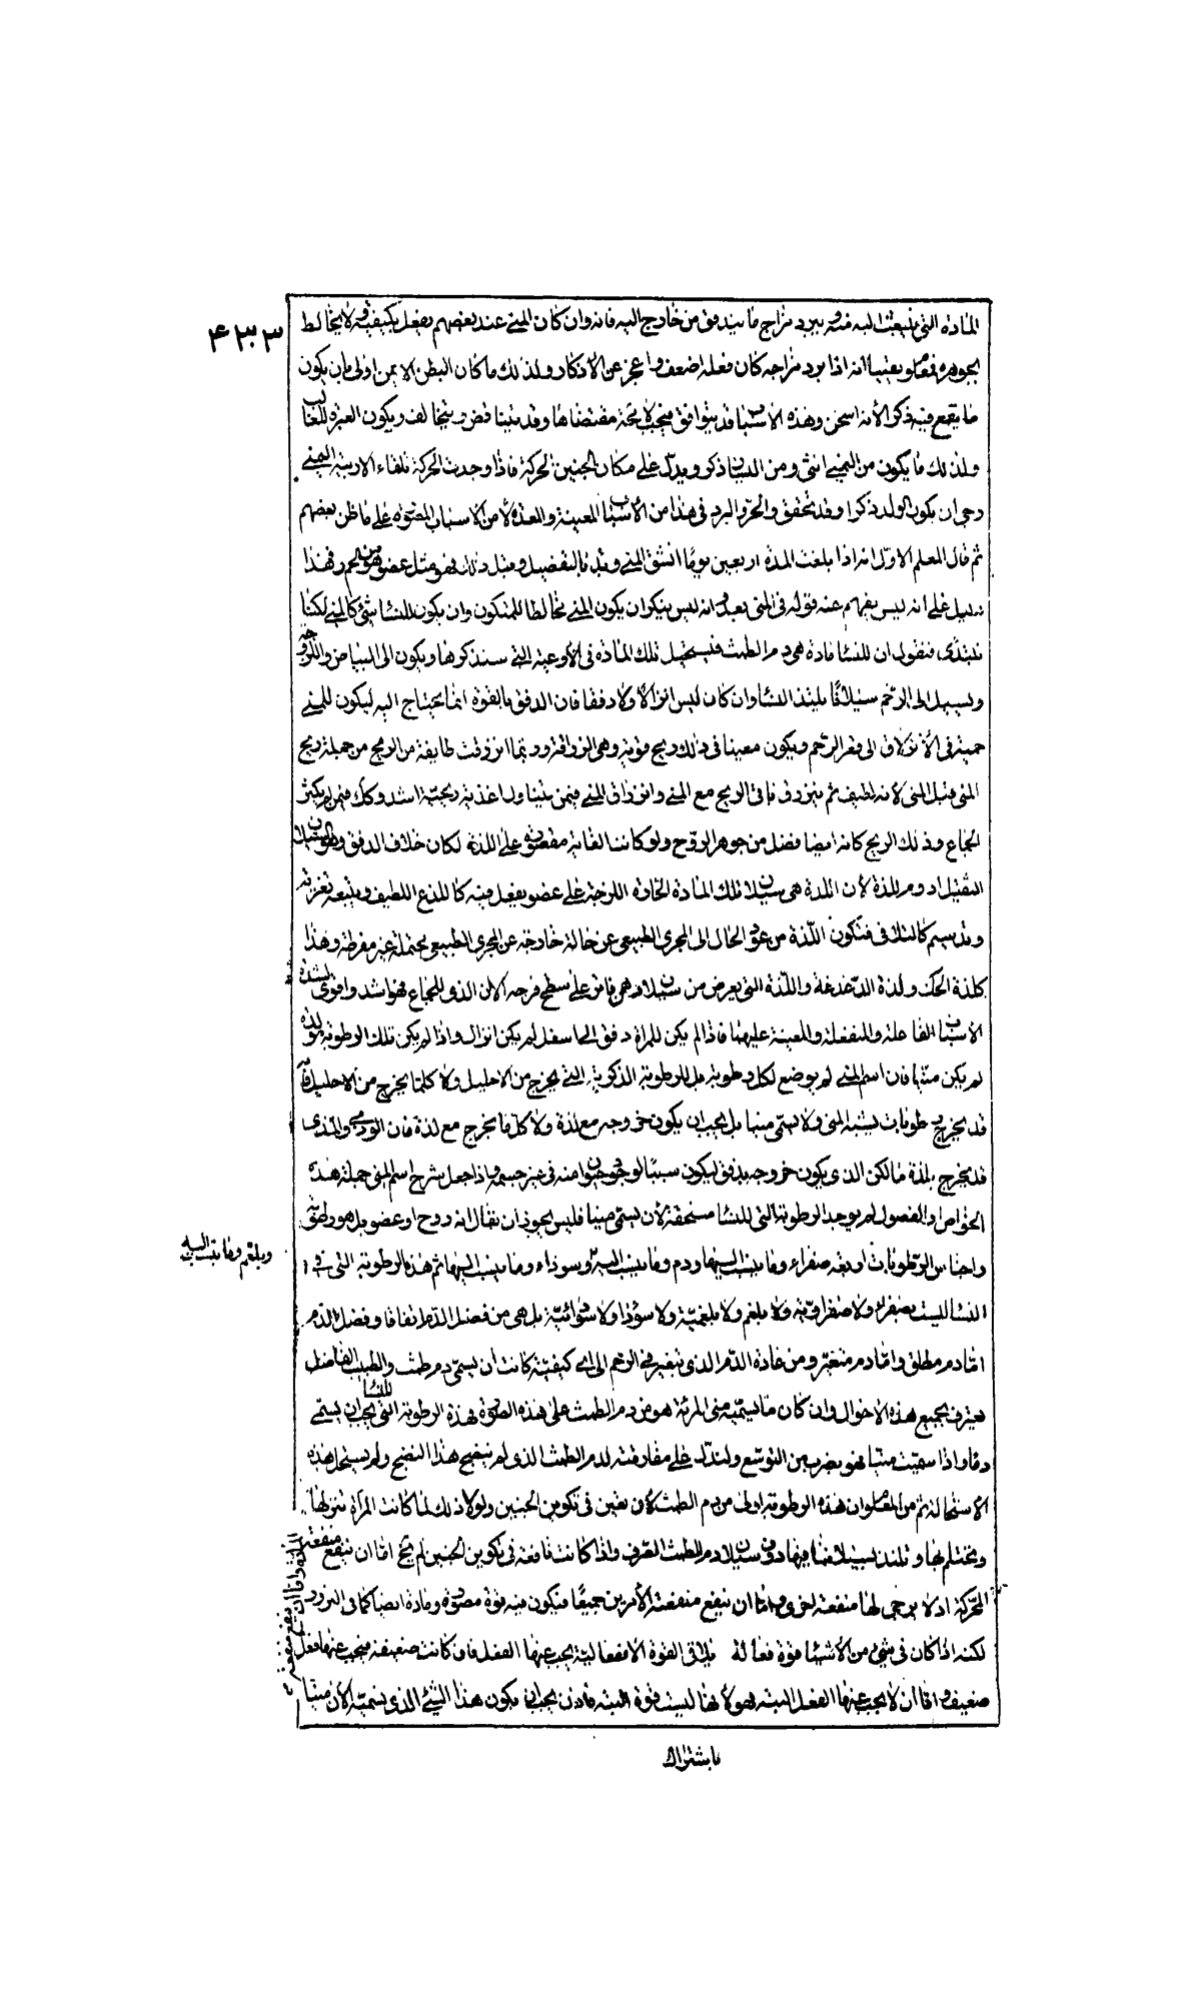 ۴۳۳
المادة التي ينبعث اليه منه ويبرد مزاج ما يندفق من خارج اليه فانه وان كان المني عند بعضهم يفعل بكيفيته ولا يخالط
بجوهره فعلو يقينا انه اذا برد مزاجه كان فعله اضعف واعجز عن الاذكار ولذلك ما كان البطن الايمن اولى بان يكون
ما يقع فيه ذكر الانه اسخن وهذه الاسباب قد يتوافق فيجب لا محة مقتضاها وقد يتناقض ويتخالف ويكون العبرة للغالب
ولذلك ما يكون من اليمين انثى ومن اليسار ذكر ويدل على مكان الجنين الحركة فاذا وجدت الحركة تلقاء الاربية اليمنى
رجى ان يكون الولد ذكرا وقد تحقق والحر والبرد في هذا من الاسباب المعينة والمعدة لا من الاسباب المصورة على ما ظن بعضهم
ثم قال المعلم الاول انه اذا بلغت المدة اربعين يوما انشق المني وبدا بالتفصيل وقبل ذلك فهو مثل عضو من لحم وهذا
دليل على انه ليس يفهم عنه قوله في المني بعد وانه ليس ينكر ان يكون المني مخالطا للمتكون وان يكون للنساء شئ كالمني لكنا
نبتدى فنقول ان للنساء مادة هي دم الطمث فيستحيل تلك المادة في الاوعية التي سنذكرها ويكون الى البياض واللزوجة
ويسيل الى الرحم سيلانا يلتذ النساء وان كان ليس انزالا ولا دفقا فان الدفق بالقوة انما يحتاج اليه ليكون للمني
حمية في الانزلاق الى قعر الرحم ويكون معينا في ذلك ريح قوية وهي الزراقة وربما انزرقت طايفة من الريح من جملة ريح
المني قبل المني لانه لطيف ثم ينزرق باقي الريح مع المني وانزراق المني فيمن يتناول اغذية ريحية اشد وكك فيمن لم يكثر
الجماع وذلك الريح كانه ايضا فضل من جوهر الروح ولو كانت الغاية مقصورة على اللذة لكان خلاف الدفق وهو السيلان
الثقيل ادوم للذة لان اللذة هي سيلان تلك المادة الحادة اللزجة على عضو يفعل فيه كاللذع اللطيف ويتبعه تغرية
وتدسيم كالتلافي فتكون اللذة من عود الحال الى المجرى الطبيعي عن حالة خارجة عن المجرى الطبيعي محتملة غير مفرطة وهذا
كلذة الحك ولذة الدغدغة واللذة التي يعرض من سيلان دهن فاتر على سطح قرحه الا ان الذي للجماع فهو اشد واقوى لشدة
الاسباب الفاعلة والمنفعلة والمعينة عليها فاذا لم يكن للمراة دفق الى اسفل لم يكن انزال واذا لم يكن تلك الرطوبة مولدة
لم يكن منيا فان اسم المني لم يوضع لكل رطوبة بل للرطوبة الذكرية التي يخرج من الاحليل ولا كلما يخرج من الاحليل فانه
قد يخرج رطوبات يشبه المني ولا يسمى منيا بل يجب ان يكون خروجه مع لذة ولا كل ما يخرج مع لذة فان الودي والمذى
قد يخرج بلذة ما لكن الذي يكون خروجه بدفق ليكون سببا لوجود حيوان منه في غير جسمه واذا جعل شرح اسم المني جملة هذه
الخواص والفصول لم يوجد الرطوبة التي للنساء مستحقة لان يسمى منيا فليس يجوز ان يقال انه روح او عضو بل هو رطوبة
واجناس الرطوبات اربعة صفراء وما ينسب اليها ودم وما ينسب اليه وسوداء وما ينسب اليها ثم هذه الرطوبة التي في
وبلغم وما ينسب اليه
النساء ليست بصفراء ولا صفراوية ولا بلغم ولا بلغمية ولا سوداء ولا سودائية بل هي من فضل الدم اتفاقا وفضل الدم
اما دم مطلق واما دم متغير ومن عادة الدم الذي تغير في الرحم الى اي كيفية كانت ان يسمى دم طمث والطبيب الفاضل
يعترف بجميع هذه الاحوال وان كان ما يسميه مني المرئة هو من دم الطمث على هذه الصورة فهذه الرطوبة التي للنساء يجب ان يسمى
دما واذا سميت منيا فهو بضرب من التوسع ولندل على مفارقته لدم الطمث الذي لم ينضج هذا النضج ولم يستحل هذه
الاستحالة ثم من المعلوم ان هذه الرطوبة اولى من دم الطمث لان تعين في تكوين الجنين ولولا ذلك لما كانت المراة تنزلها
ويحتلم بها وتلتذ بسيلانها فيها دون سيلان دم الطمث الصرف واذا كانت نافعة في تكوين الجنين لم يخ اما ان ينفع منفعة
المادة واما ان ينفع منفعة
المحركة اذ لا يرجى لها منفعة اخرى واما ان ينفع منفعة الامرين جميعا فيكون فيه قوة مصورة ومادة ايضا كما في البزور
لكنه اذا كان في شئ من الاشياء قوة فعالة يلاقي القوة الانفعالية يجب عنها الفعل فان كانت ضعيفة فيجب عنها فعل
ضعيف واما ان لا يجب عنها الفعل البتة فهو لانها ليست قوة البتة فاذن يجب ان يكون هذا الشئ الذي نسميه الان منيا
باشتراك